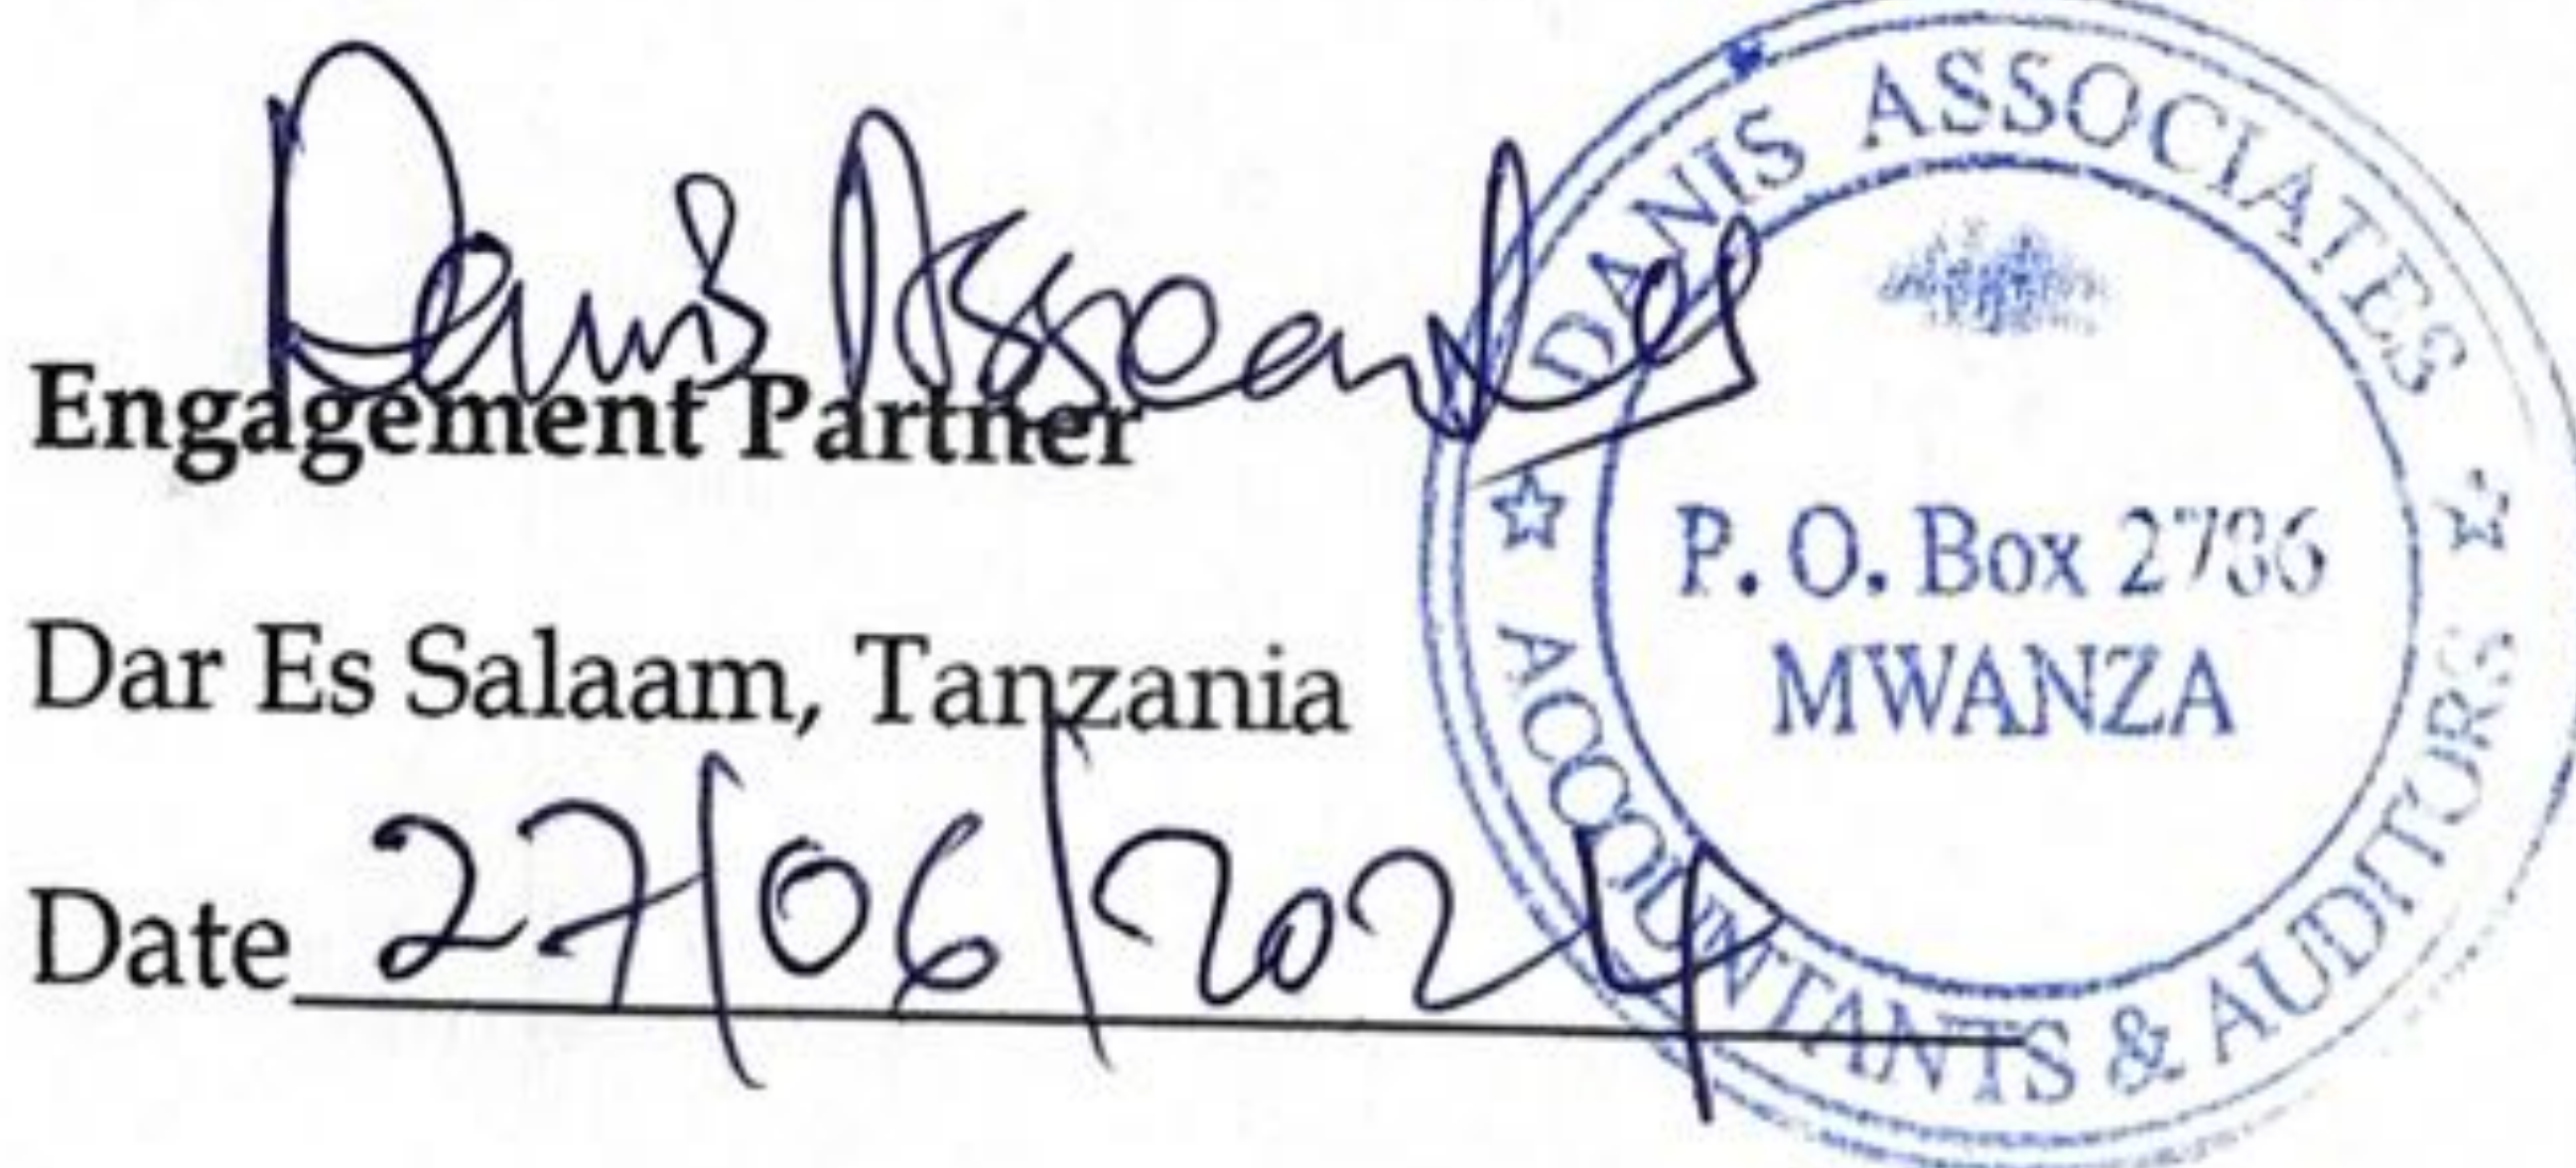 Danis Associates
Engagement Partner
Dar Es Salaam, Tanzania
Date 27/06/2024
DANIS ASSOCIATES
P. O. Box 2786
MWANZA
ACCOUNTANTS & AUDITORS